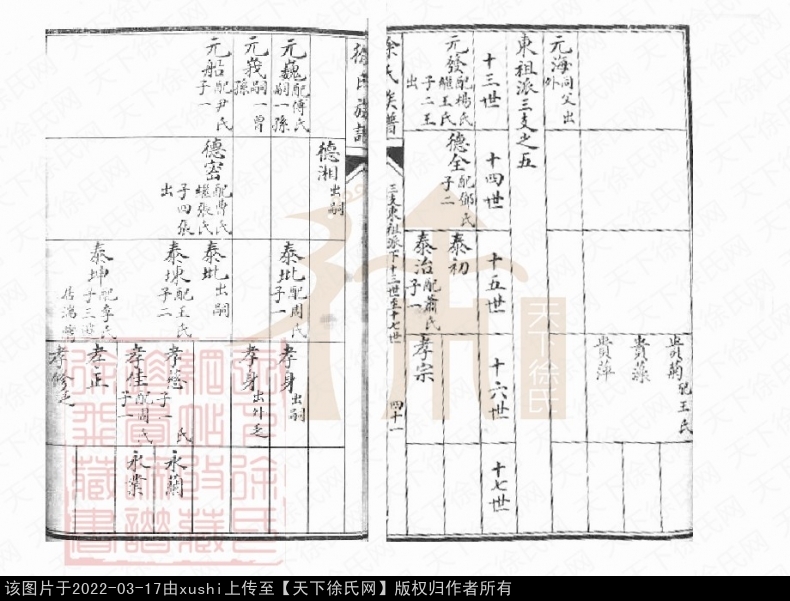 元海同父出
外
貴蘜配王氏
貴藻
貴萍
東祖派三支之五
十三世
十四世
十五世
十六世
十七世
元發配楊氏
繼王氏
子二王
出
德全配鄒氏
子二
泰初
泰治配蕭氏
子一
孝宗
徐氏族譜
三支東祖派下十三世至十七世
四十一
徐氏族譜
德湘出嗣
元巍配傅氏
嗣一孫
元峩嗣一曾
孫
元船配尹氏
子一
德密配曹氏
繼張氏
子四張
出
泰圠配周氏
子一
泰圠出嗣
泰堜配王氏
子二
泰坤配李氏
子三
孝身出嗣
孝身出外乏
孝慈 氏
子一
孝佳配周氏
子一
孝正
孝修乏
永蘭
永業
天下徐氏网
该图片于2022-03-17由xushi上传至【天下徐氏网】版权归作者所有